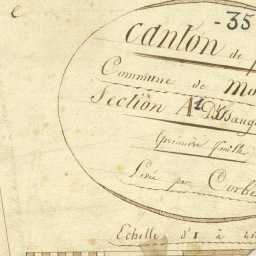 -35
Canton de
Commune de Mo
Section A
première feuille
Levé par Corbe
Echelle d' 1 à